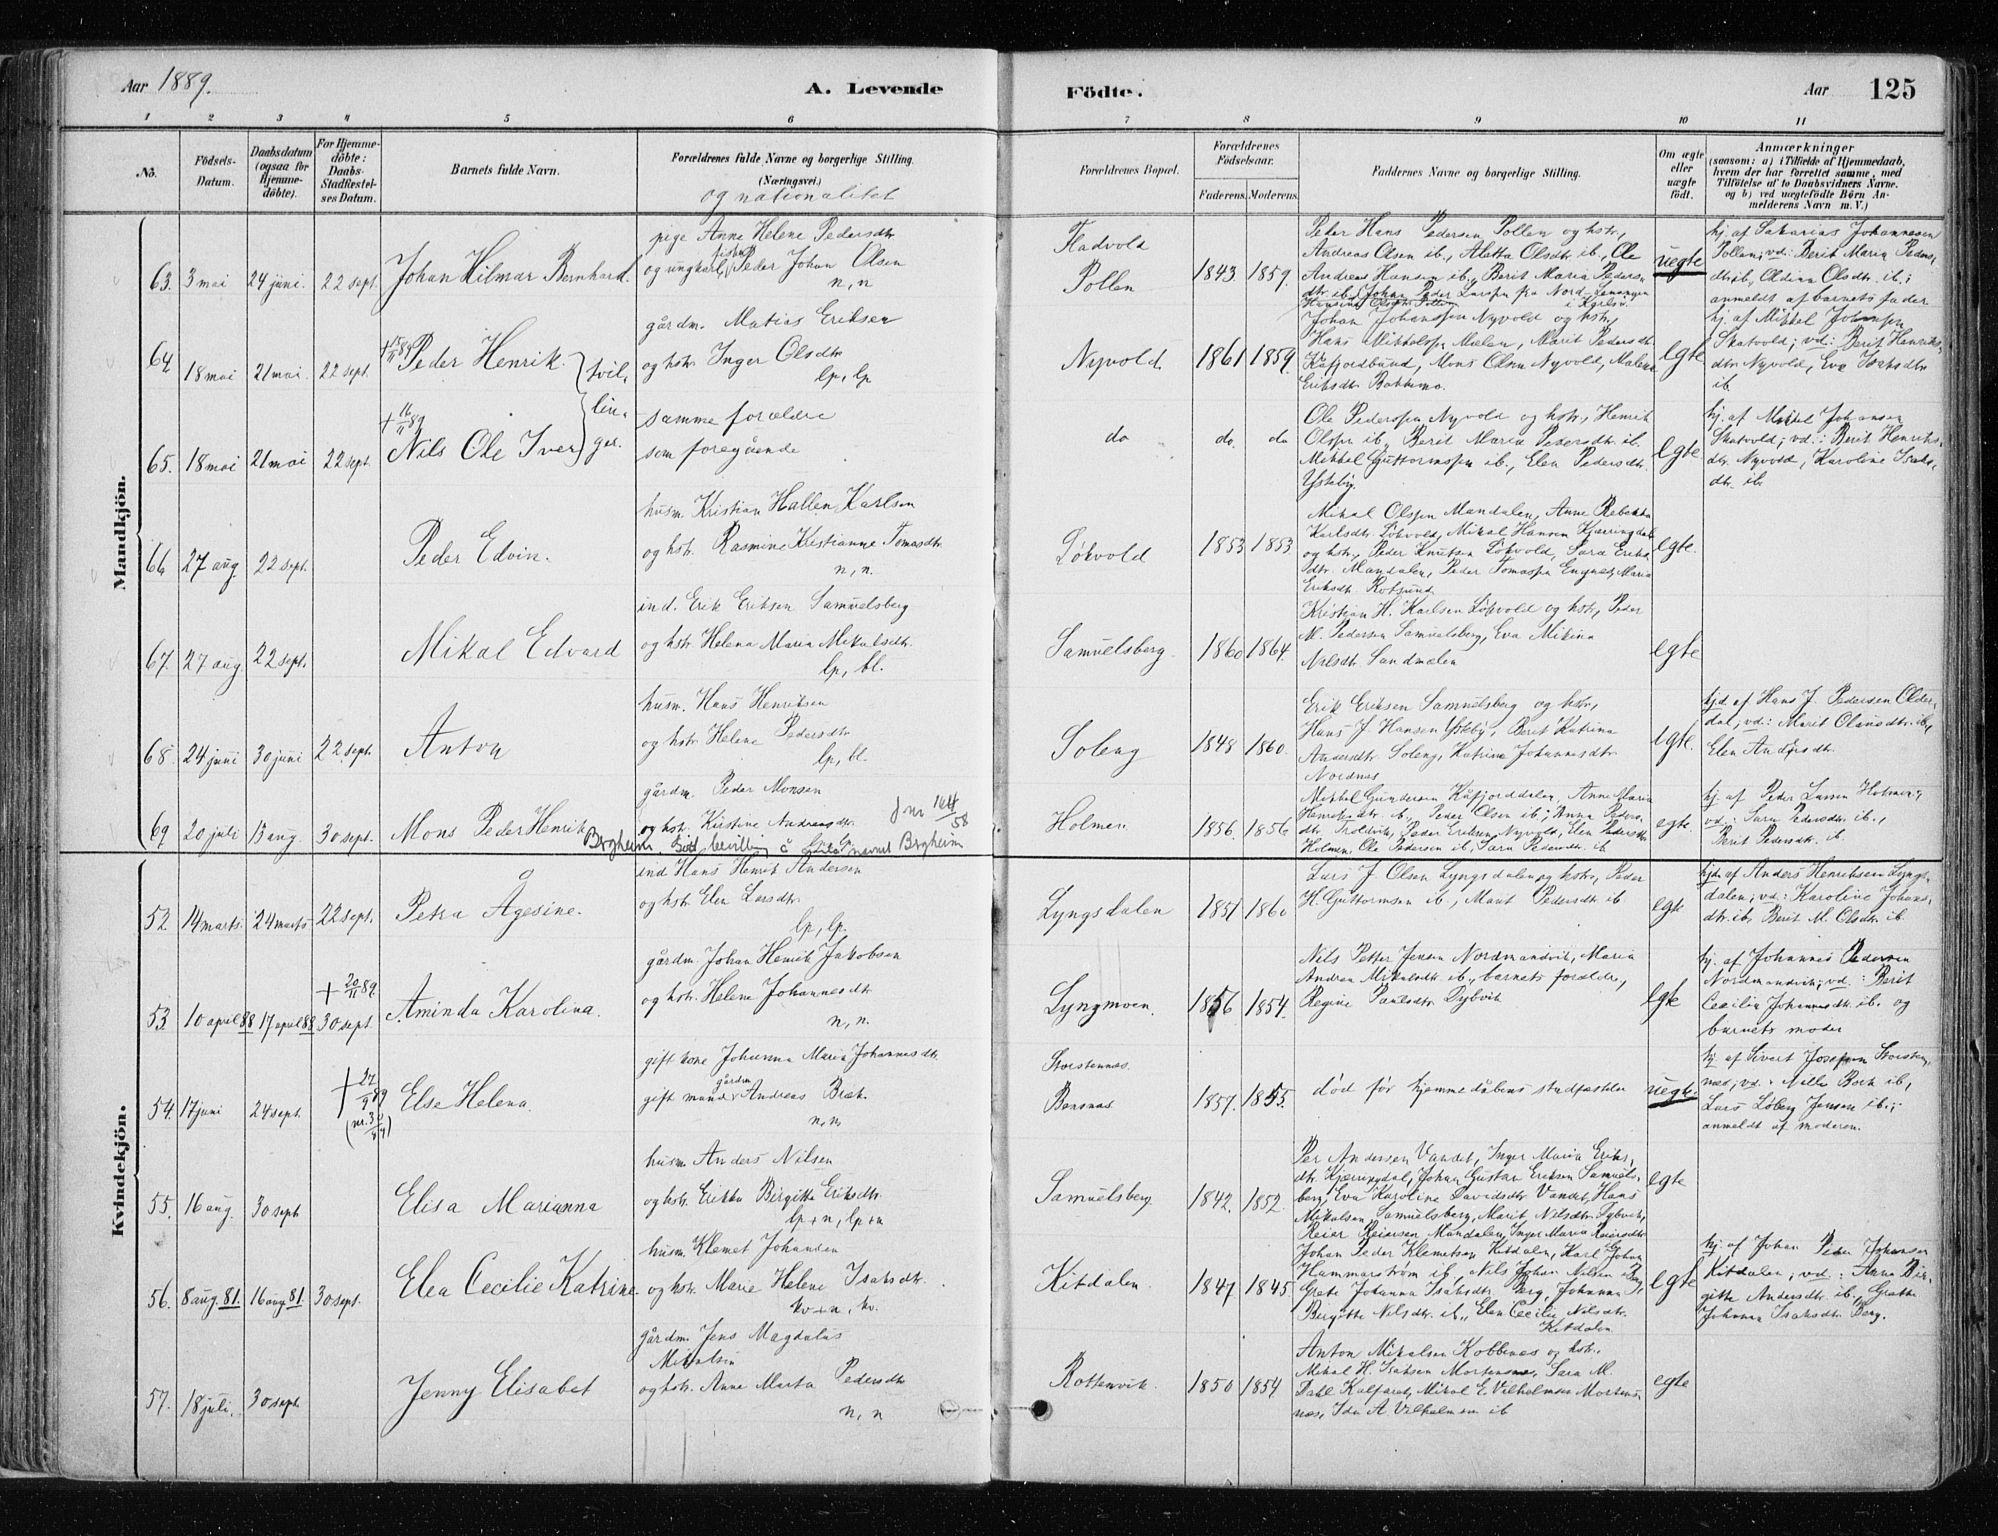 Aar 1889.
A. Levende
Födte.
Aar 125
1 2 3 4 5 6 7 8 9 10 11
No.
Födsels-Datum.
Daabsdatum (ogsaa for Hjemme-döbte).
For Hjemme-döbte: Daabs-Stadfæstel-ses Datum.
Barnets fulde Navn.
Forældrenes fulde Navne og borgerlige Stilling.
(Næringsvei.)
og nationalitet
Forældrenes Bopæl.
Forældrenes Födselsaar.
Faderens. Moderens.
Faddernes Navne og borgerlige Stilling.
Om ægte eller uægte födt.
Anmærkninger
(saasom: a) i Tilfælde af Hjemmedaab,
hvem der har forrettet samme, med
Tilföielse af to Daabsvidners Navne.
og b) ved uægtefödte Börn An-
melderens Navn m. V.)
Mandkjön.
63. 3 mai 24 juni. 22 sept. Johan Hilmar Bernhard.
pige Anne Helene Pedersdtr
og ungkarl Peder Johan Olsen
n, n
Fladvold
Pollen
1843 1859.
Peder Hans Pedersen Pollen og hstr,
Andreas Olsen ib., Aletta Olsdtr ib., Ole
Andreas Hansen ib., Berit Maria Peders
dtr ib. Johan Peder Larsen fra Nord-Lenangen
i Karlsø.
uegte
hj. af Sakarias Johannesen
Pollen; vd: Berit Maria Peders
dtr ib, Oldina Olsdtr. ib.;
anmeldt af barnets fader
64 18 mai 21 mai 22 sept. Peder Henrik. tvil,
gårdm. Matias Eriksen
og hstr. Inger Olsdtr
lp, lp
Nyvold 1861 1859.
Johan Johanssen Nyvold og hstr,
Hans Mikkelsen Mælen, Marit Pedersdtr
Kåfjordbund, Mons Olsen Nyvold, Malena
Eriksdtr
egte
hj. af Mikkel Johansen
Skatvold; vd: Berit Henriks,
dtr Nyvold, Eva Isaksdtr
ib.
65. 18 mai 21 mai 22 sept. + 16/11 89 Nils Ole Iver lin, ger.
samme forældre
som foregående
do do. do
Ole Pederssen Nyvold og hstr, Henrik
Olssen ib, Berit Maria Pedersdtr ib.
Mikkel Guttormssen ib., Elen Pedersdtr.
Ysteby.
egte
hj. af Mikkel Johansen
Skatvold; vd.: Berit Henriks,
dtr. Nyvold, Karoline Isaks,
dtr. ib.
66 27 aug. 22 sept. Peder Edvin.
husm. Kristian Hallen Karlsen
og hstr. Rasmine Kristianne Tomasdtr.
n, n.
Løkvold 1853 1853
Mikal Olssen Mandalen, Anne Rebekka
Karlsdtr. Løkvold, Mikal Hansen Kjærringdal
og hstr, Peder Knutsen Løkvold, Sara Eriks
dtr. Mandalen, Peder Tomassen Engnes, Maria
Eriksdtr Rotsund
egte.
67. 27 aug. 22 sept. Mikal Edvard
ind. Erik Eriksen Samuelsberg
og hstr Helena Maria Mikalsdtr.
lp, bl.
Samuelsberg. 1860 1864.
Kristian H. Karlsen Løkvold og hstr, Peder
M. Pedersen Samuelsberg, Eva Mikina
Nilsdtr. Sandmælen
egte
68. 24 juni 30 juni 22. sept. Anton
husm. Hans Henriksen
og hstr Helene Pedersdtr
lp, bl.
Soleng 1848 1860.
Erik Eriksen Samuelsberg og hstr,
Hans J. Hansen Ysteby, Berit Katrina
Andersdtr. Soleng, Katrine Johannesdtr
Nordnes
egte.
hjd af Hans J. Pedersen Older
dal; vd: Marit Olausdtr. ib,
Elen Andersdtr.
69 20 juli 13 aug. 30 sept. Mons Peder Henrik
gårdm. Peder Monsen
og hstr. Kirstine Andreasdtr.
lp
J nr 144/58
Bergheim Gitt bevilling å føre navnet Bergheim
Holmen 1856. 1856
Mikkel Gundersen Kåfjorddalen, Anne Maria
Henriksdtr ib., Peder Olsen ib; Anna Peders
dtr Troldvik, Peder Eriksen Nyvold, Elen Pedersdtr
Holmen, Ole Pedersen ib, Sara Pedersdtr. ib
egte
hj. af Peder Larsen Holmen;
vd: Sara Pedersdtr. ib.,
Berit Pedersdtr. ib
Kvindekjön.
52 14 marts. 24 marts 22 sept. Petra Ågesine.
ind Hans Henrik Andersen
og hstr. Elen Larsdtr.
lp, lp.
Lyngsdalen 1851 1860
Lars J Olsen Lyngsdalen og hstr, Peder
H. Guttormsen ib., Marit Pedersdtr ib.
egte
hjd. af Anders Henriksen Lyngs,
dalen; vd: Karoline Johans,
dtr. ib, Berit M. Olsdtr ib.
53. 10 april 88 17 april 88 30 sept. + 20/11 89. Aminda Karolina.
gårdm. Johan Henrik Jakobsen
og hstr. Helene Johannesdtr
n, n.
Lyngmoen. 1856 1854.
Nils Petter Jensen Nordmandvik, Maria
Andrea Mikalsdtr ib., barnets forældre,
Regine Paulsdtr. Dybvik
egte
hj. af Johannes Pedersen
Nordmandvik; vd: Berit
Cecilia Johannesdtr. ib. og
barnets moder
54. 17 juni 24 sept. + 27/9 89 Else Helena.
gift kone Johanna Maria Johannesdtr.
gift mand gårdm Andreas Bræk.
n, n
Storstennæs.
Bensnæs. 1857. 1855.
død før hjemmedåbens stadfæstelse
uegte.
hj. af Sivert Storsten,
næs; vd: Nille Bork ib,
Lars Løberg Jensen ib.;
anmeldt af moderen.
55. 16 aug. 30 sept Elisa Marianna
husm. Anders Nilsen
og hstr. Erikka Birgitte Eriksdtr.
lp+n, lp+n
Samuelsberg. 1842. 1852.
Per Andersen Vandet, Inger Maria Eriks,
dtr. Kjerringdal, Johan Gustav Eriksen Samuels,
berg, Eva Karoline Davidsdtr. Vandet, Hans
Mikalsen Samuelsberg, Marit Nilsdtr. Dybvik,
Reier Reiersen Mandalen, Inger Maria Reiersdtr
egte
56. 8 aug. 81. 16 aug. 81. 30 sept. Elea Cecilie Katrine
husm. Klemet Johansen
og hstr. Marie Helene Isaksdtr.
kv+n, kv.
Kitdalen. 1847 1845.
Johan Peder Klemetsen Kitdalen, Karl Johan
Hammarstrøm ib, Nils Johan Nilsen
Grete Johanna Isaksdtr. Berg, Johanna
Birgitte Nilsdtr. ib., Elen Cecilie Nilsdtr.
Kitdalen
egte
hj. af Johan Peder Johansen
Kitdalen; vd: Anna Bir,
gitte Andersdtr. ib., Grethe
Johanna Isaksdtr. Berg.
57. 18 juli. 30 sept. Jenny Elisabet
gårdm. Jens Magdalus
Mikalsen
og hstr. Anne Marta Pedersdtr
n, n
Rottenvik. 1850 1854
Anton Mikalsen Kobbenes og hstr.
Mikal H. Isaksen Mortensnæs, Sara M.
Dahl Kalfaret, Mikal E. Vilhelmsen Mortens,
næs, Ida A. Vilhelmsen ib
egte